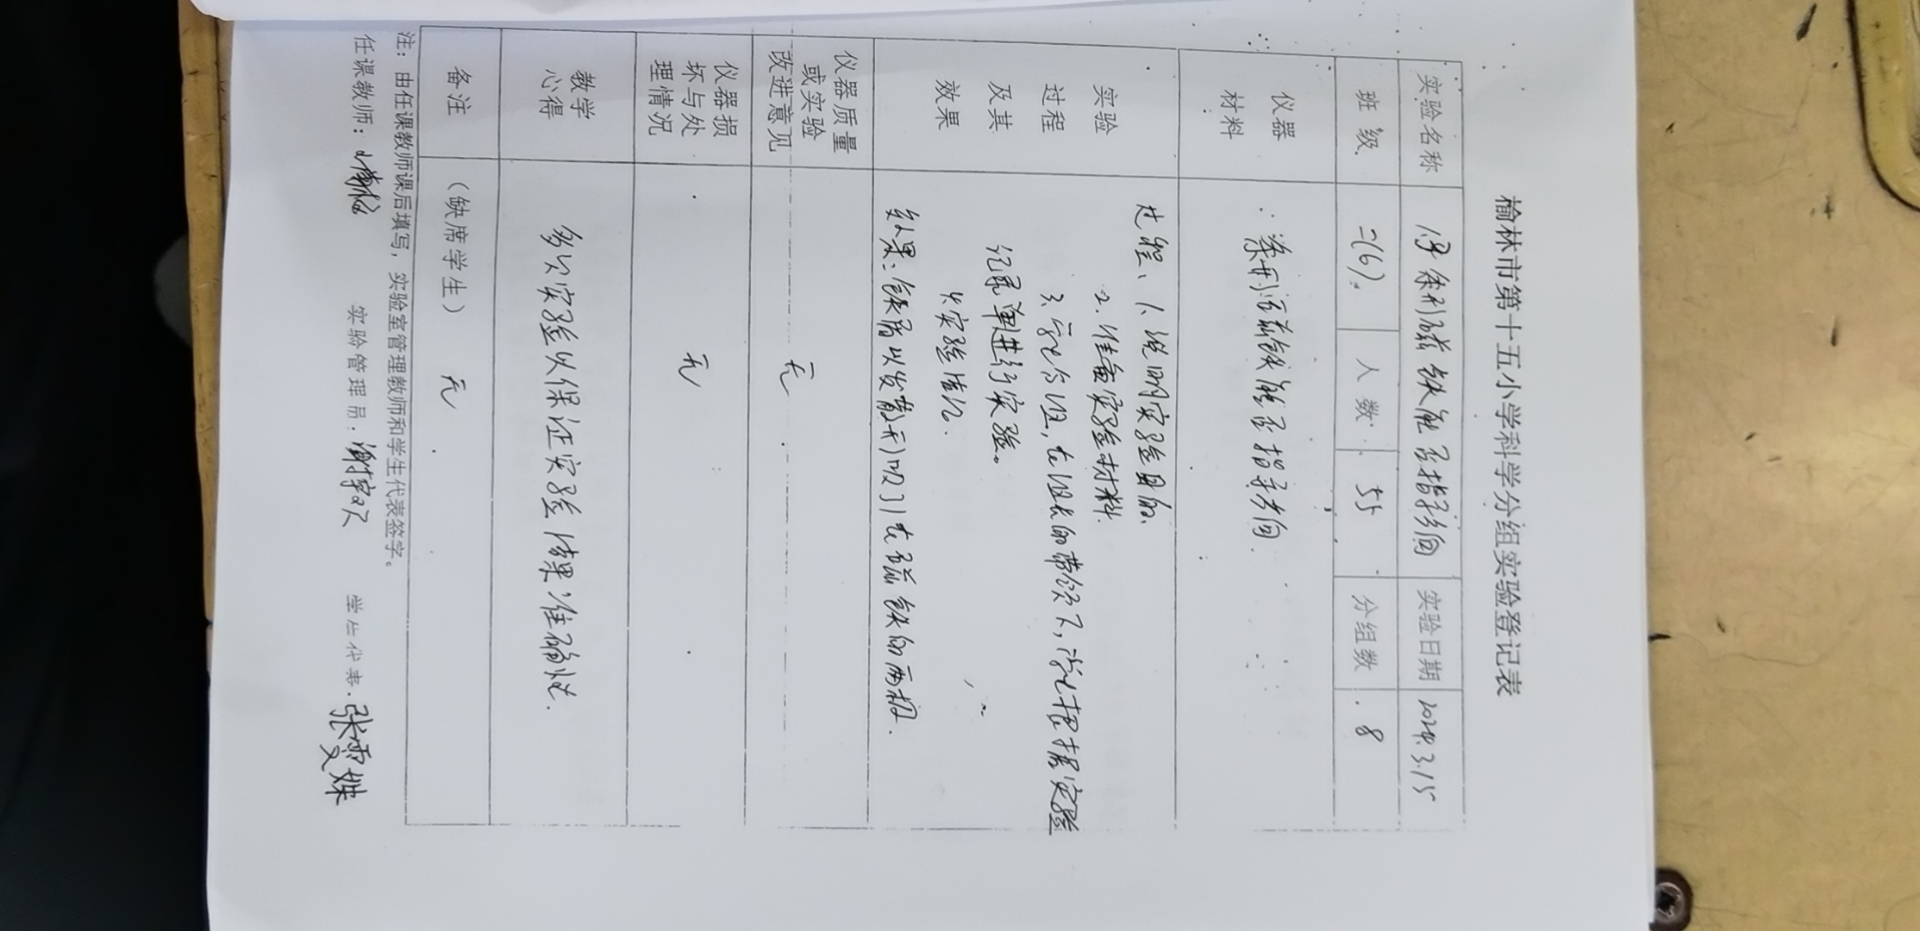 榆林市第十五小学科学分组实验登记表
实验名称 条形磁铁能否指导方向 实验日期 2024.3.15
班级 二(6) 人数 55 分组数 8
仪器
材料
条形磁铁能否指导方向.
实验
过程
及其
效果
过程、1、说明实验目的.
2.准备实验材料.
3、学生分组,在组长的带领下,学生根据实验
记录单进行实验。
4.实验结论.
效果:铁屑以发散形吸引在磁铁的两极.
仪器质量
或实验
改进意见
无
仪器损
坏与处
理情况
无
教学
心得
多次实验以保证实验结果准确性.
备注 (缺席学生) 无
注:由任课教师课后填写,实验室管理教师和学生代表签字。
任课教师: 实验管理员: 学生代表.